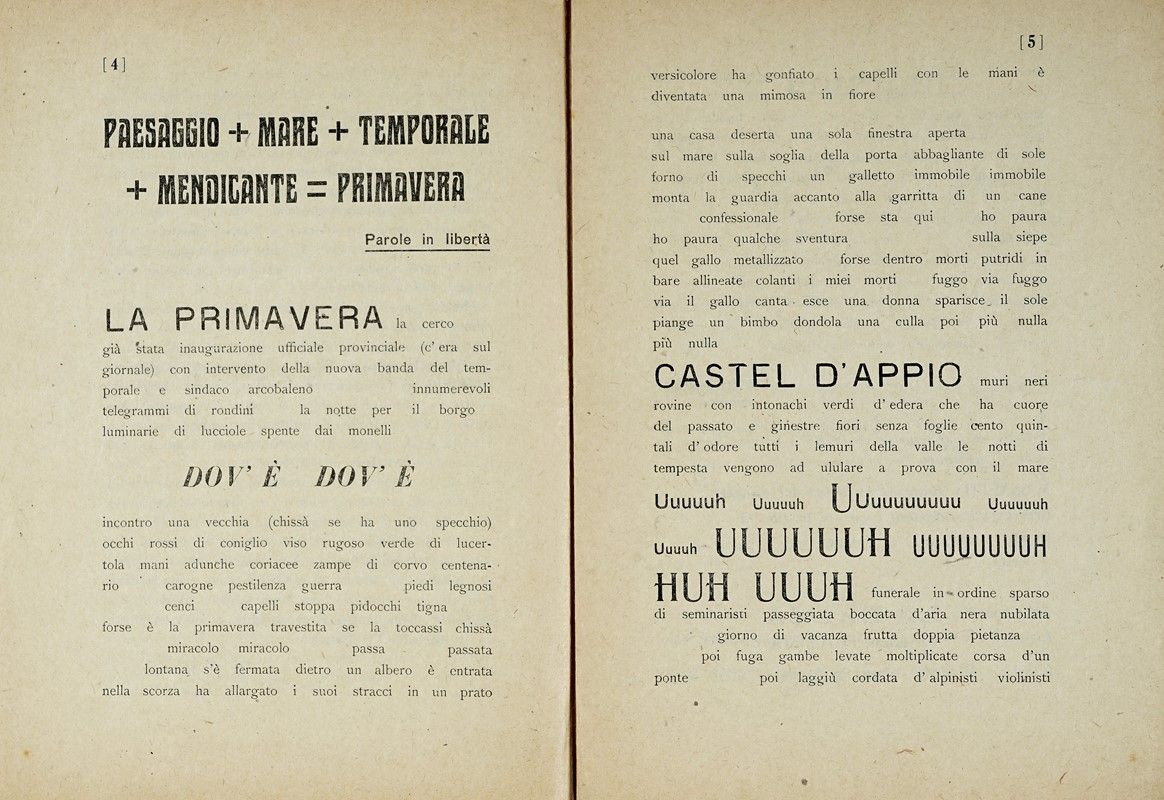 [4]
PAESAGGIO + MARE + TEMPORALE
+ MENDICANTE = PRIMAVERA
Parole in libertà
LA PRIMAVERA la cerco
già stata inaugurazione ufficiale provinciale (c' era sul
giornale) con intervento della nuova banda del tem-
porale e sindaco arcobaleno innumerevoli
telegrammi di rondini la notte per il borgo
luminarie di lucciole spente dai monelli
DOV' È DOV' È
incontro una vecchia (chissà se ha uno specchio)
occhi rossi di coniglio viso rugoso verde di lucer-
tola mani adunche coriacee zampe di corvo centena-
rio carogne pestilenza guerra piedi legnosi
cenci capelli stoppa pidocchi tigna
forse è la primavera travestita se la toccassi chissà
miracolo miracolo passa passata
lontana s'è fermata dietro un albero è entrata
nella scorza ha allargato i suoi stracci in un prato
[5]
versicolore ha gonfiato i capelli con le mani è
diventata una mimosa in fiore
una casa deserta una sola finestra aperta
sul mare sulla soglia della porta abbagliante di sole
forno di specchi un galletto immobile immobile
monta la guardia accanto alla garritta di un cane
confessionale forse sta qui ho paura
ho paura qualche sventura sulla siepe
quel gallo metallizzato forse dentro morti putridi in
bare allineate colanti i miei morti fuggo via fuggo
via il gallo canta esce una donna sparisce il sole
piange un bimbo dondola una culla poi più nulla
più nulla
CASTEL D'APPIO muri neri
rovine con intonachi verdi d' edera che ha cuore
del passato e ginestre fiori senza foglie cento quin-
tali d' odore tutti i lemuri della valle le notti di
tempesta vengono ad ululare a prova con il mare
Uuuuuh Uuuuuh Uuuuuuuuuu Uuuuuuh
Uuuuh UUUUUUUH UUUUUUUUH
HUH UUUH funerale in ordine sparso
di seminaristi passeggiata boccata d'aria nera nubilata
giorno di vacanza frutta doppia pietanza
poi fuga gambe levate moltiplicate corsa d'un
ponte poi laggiù cordata d' alpinisti violinisti